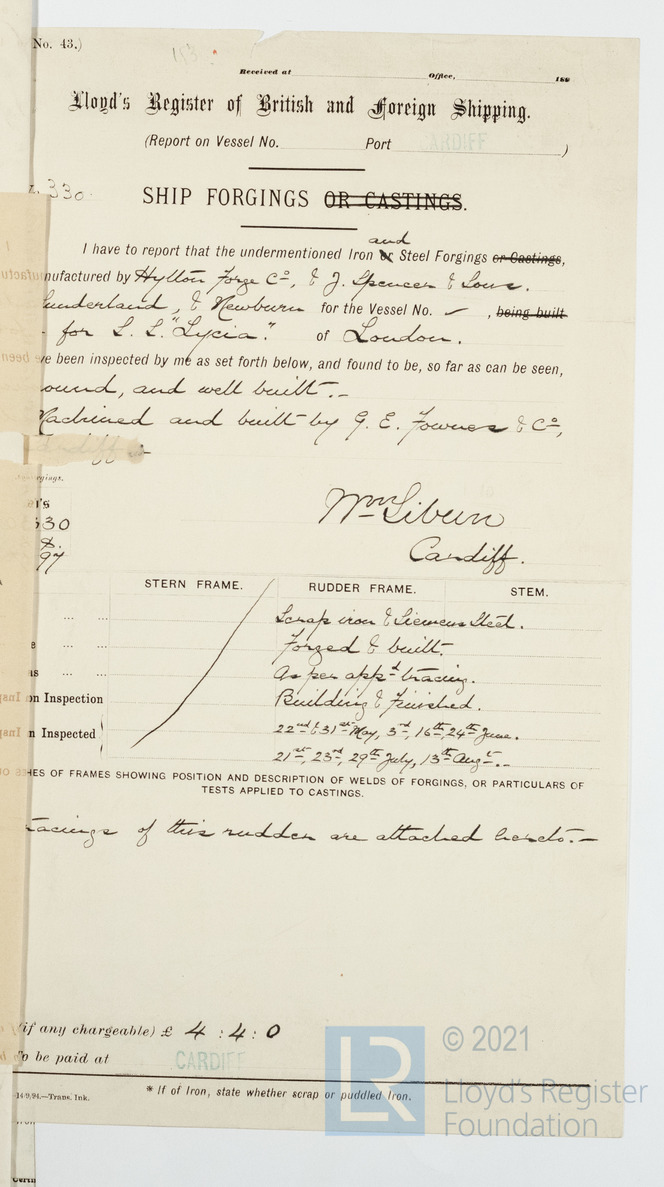 No. 43.)
Received at Office, 189
Lloyd's Register of British and Foreign Shipping.
(Report on Vessel No. Port CARDIFF )
330
SHIP FORGINGS OR CASTINGS.
and
I have to report that the undermentioned Iron or Steel Forgings or Castings,
nufactured by Hylton Forge Co, & J. Spencer & Sons.
Sunderland, & Newburn for the Vessel No. ✓ , being built
- for S. S. "Lycia". of London.
ve been inspected by me as set forth below, and found to be, so far as can be seen,
ound, and well built.-
Machined and built by G. E. Fownes & Co,
Cardiff
orgings.
330
97
Wm Liburn
Cardiff.
STERN FRAME. RUDDER FRAME. STEM.
... ... Scrap iron & Siemens Steel.
... ... Forged & built.
... ... As per appd tracing.
on Inspection Building & Finished.
n Inspected 22nd & 31st May, 3rd, 16th, 24th June.
21st, 23rd, 29th July, 13th Augt.-
HES OF FRAMES SHOWING POSITION AND DESCRIPTION OF WELDS OF FORGINGS, OR PARTICULARS OF
TESTS APPLIED TO CASTINGS.
racings of this rudder are attached hereto.-
(if any chargeable) £ 4 : 4 : 0
To be paid at CARDIFF
14/9/94.—Trans. Ink.
* If of Iron, state whether scrap or puddled Iron.
LR
© 2021
Lloyd's Register
Foundation